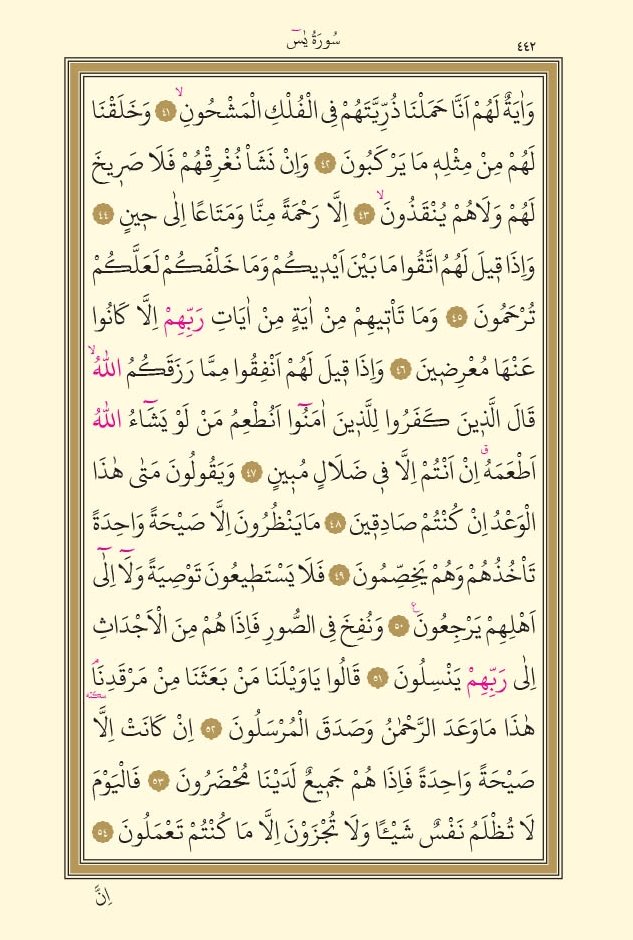 سُورَةُ يٰسٓ ٤٤٢
وَاٰيَةٌ لَهُمْ اَنَّا حَمَلْنَا ذُرِّيَّتَهُمْ فِى الْفُلْكِ الْمَشْحُونِۙ ٤١ وَخَلَقْنَا
لَهُمْ مِنْ مِثْلِه۪ مَا يَرْكَبُونَ ٤٢ وَاِنْ نَشَأْ نُغْرِقْهُمْ فَلَا صَر۪يخَ
لَهُمْ وَلَاهُمْ يُنْقَذُونَۙ ٤٣ اِلَّا رَحْمَةً مِنَّا وَمَتَاعًا اِلٰى ح۪ينٍ ٤٤
وَاِذَا ق۪يلَ لَهُمُ اتَّقُوا مَا بَيْنَ اَيْد۪يكُمْ وَمَا خَلْفَكُمْ لَعَلَّكُمْ
تُرْحَمُونَ ٤٥ وَمَا تَأْت۪يهِمْ مِنْ اٰيَةٍ مِنْ اٰيَاتِ رَبِّهِمْ اِلَّا كَانُوا
عَنْهَا مُعْرِض۪ينَ ٤٦ وَاِذَا ق۪يلَ لَهُمْ اَنْفِقُوا مِمَّا رَزَقَكُمُ اللّٰهُۙ
قَالَ الَّذ۪ينَ كَفَرُوا لِلَّذ۪ينَ اٰمَنُٓوا اَنُطْعِمُ مَنْ لَوْ يَشَٓاءُ اللّٰهُ
اَطْعَمَهُۗ اِنْ اَنْتُمْ اِلَّا ف۪ى ضَلَالٍ مُب۪ينٍ ٤٧ وَيَقُولُونَ مَتٰى هٰذَا
الْوَعْدُ اِنْ كُنْتُمْ صَادِق۪ينَ ٤٨ مَايَنْظُرُونَ اِلَّا صَيْحَةً وَاحِدَةً
تَأْخُذُهُمْ وَهُمْ يَخِصِّمُونَ ٤٩ فَلَا يَسْتَط۪يعُونَ تَوْصِيَةً وَلَٓا اِلٰٓى
اَهْلِهِمْ يَرْجِعُونَ۟ ٥٠ وَنُفِخَ فِى الصُّورِ فَاِذَا هُمْ مِنَ الْاَجْدَاثِ
اِلٰى رَبِّهِمْ يَنْسِلُونَ ٥١ قَالُوا يَاوَيْلَنَا مَنْ بَعَثَنَا مِنْ مَرْقَدِنَاۢ سكته
هٰذَا مَاوَعَدَ الرَّحْمٰنُ وَصَدَقَ الْمُرْسَلُونَ ٥٢ اِنْ كَانَتْ اِلَّا
صَيْحَةً وَاحِدَةً فَاِذَا هُمْ جَم۪يعٌ لَدَيْنَا مُحْضَرُونَ ٥٣ فَالْيَوْمَ
لَا تُظْلَمُ نَفْسٌ شَيْـًٔا وَلَا تُجْزَوْنَ اِلَّا مَا كُنْتُمْ تَعْمَلُونَ ٥٤
اِنَّ